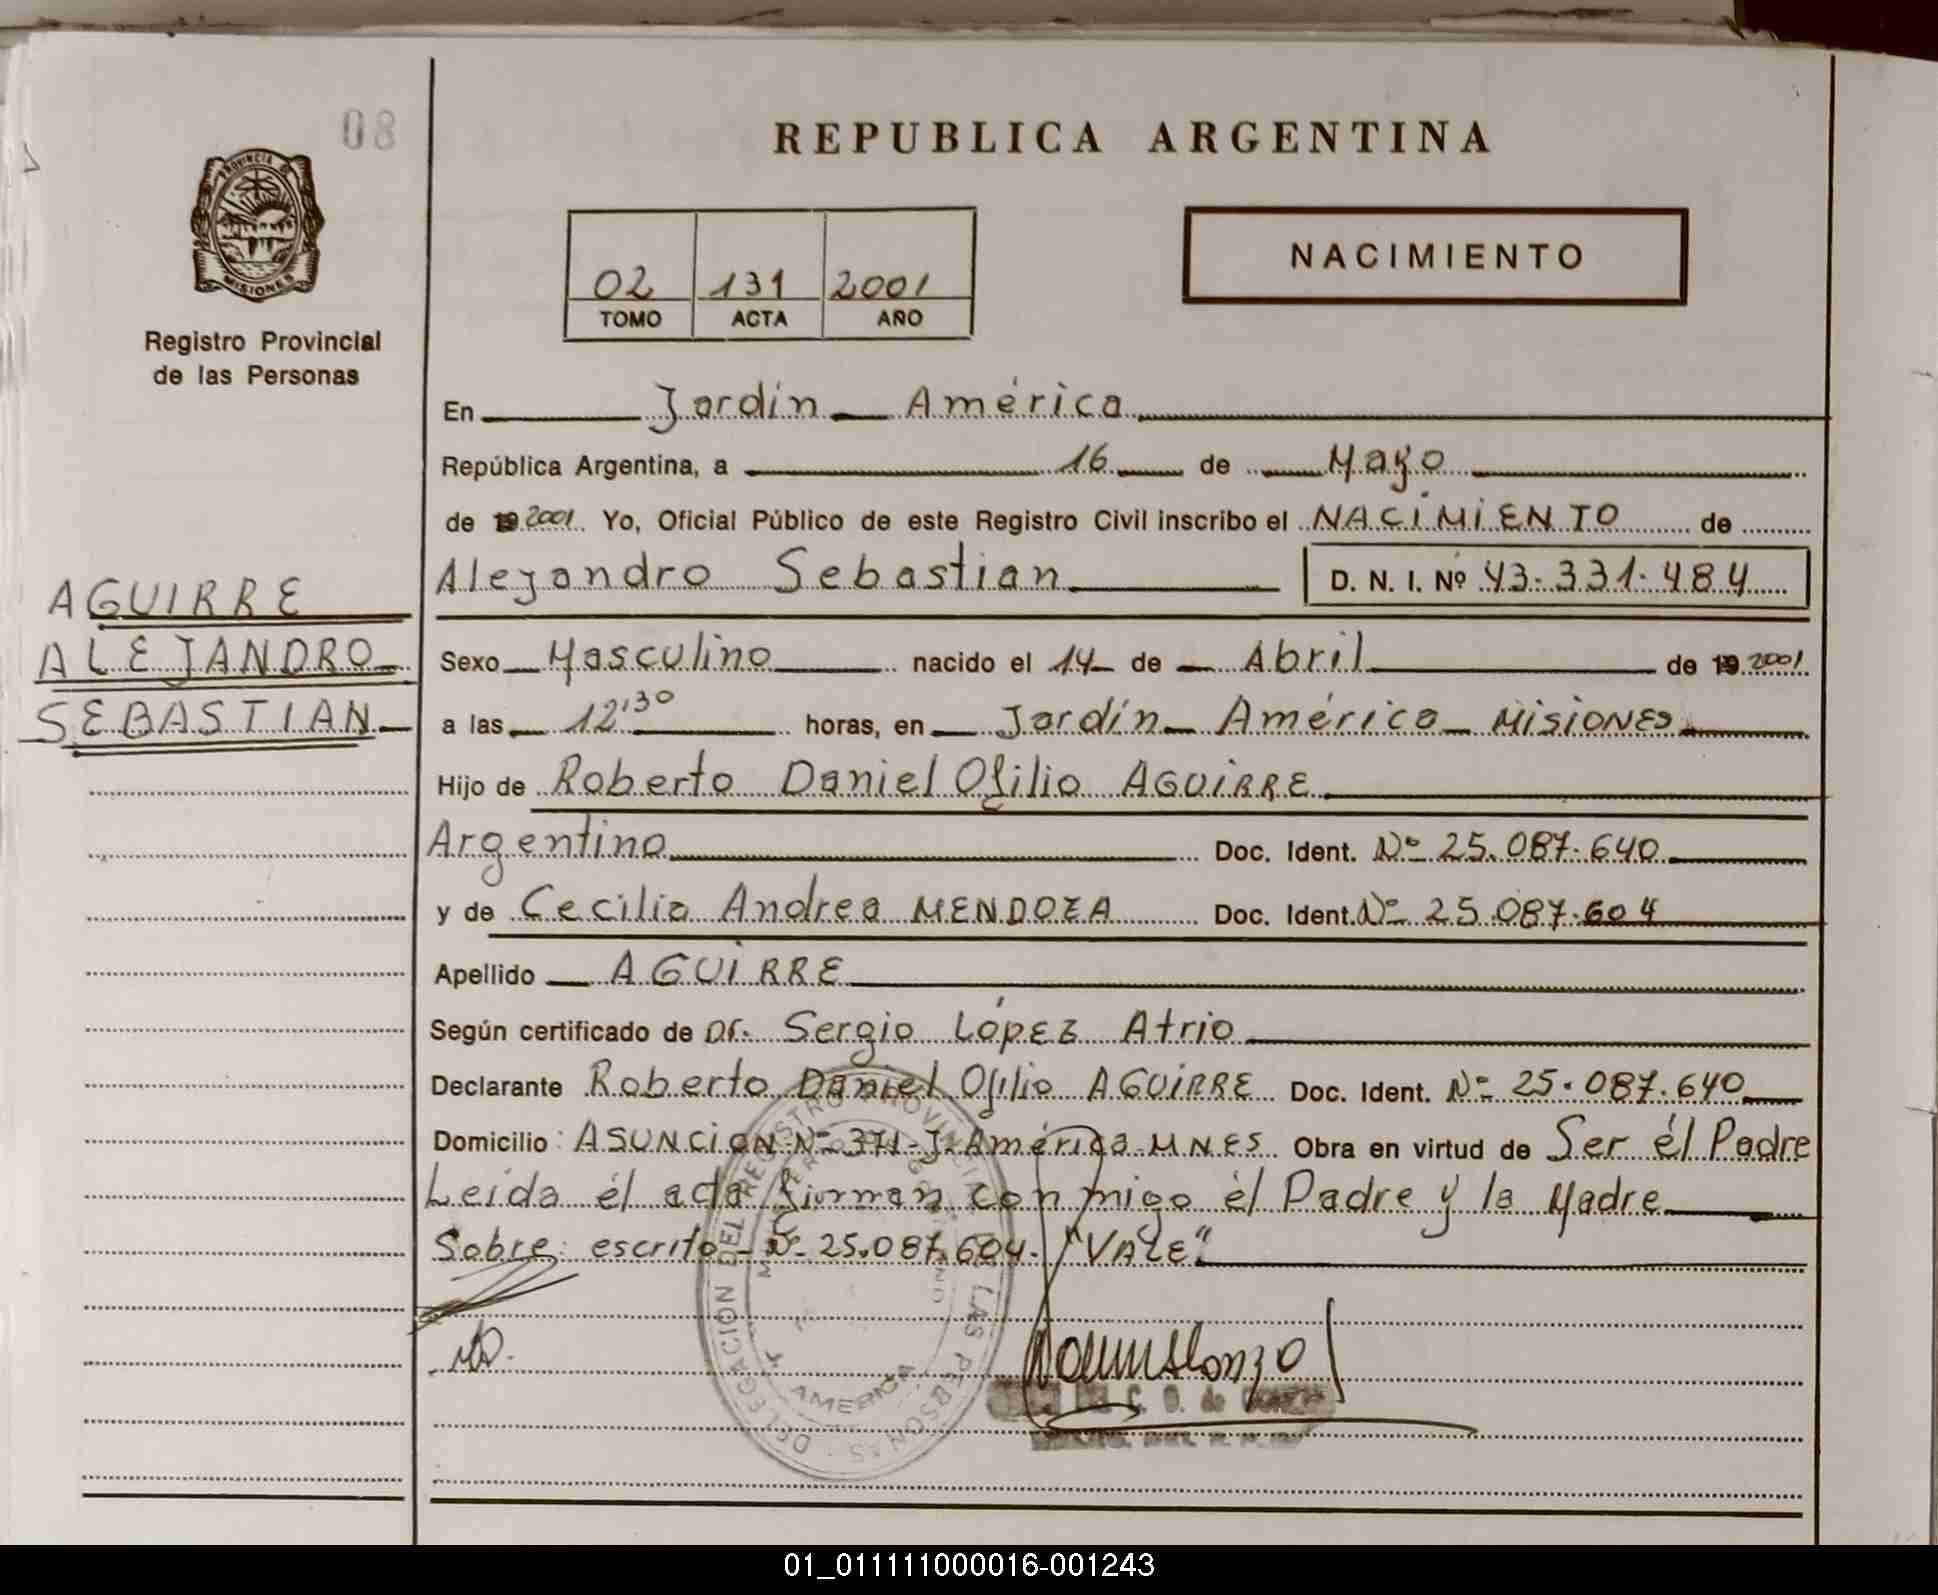 08
PROVINCIA DE
MISIONES
Registro Provincial
de las Personas
AGUIRRE
ALEJANDRO
SEBASTIAN
REPUBLICA ARGENTINA
02 131 2001
TOMO ACTA AÑO
NACIMIENTO
En Jardín América
República Argentina, a 16 de Mayo
de 19 2001 Yo, Oficial Público de este Registro Civil inscribo el NACIMIENTO de
Alejandro Sebastian D. N. I. Nº 43.331.484
Sexo Masculino nacido el 14 de Abril de 19 2001
a las 12'30 horas, en Jardín América MISIONES
Hijo de Roberto Daniel Ofilio AGUIRRE
Argentino Doc. Ident. Nº 25.087.640
y de Cecilia Andrea MENDOZA Doc. Ident. Nº 25.087.604
Apellido AGUIRRE
Según certificado de Dr. Sergio López Atrio
Declarante Roberto Daniel Ofilio AGUIRRE Doc. Ident. Nº 25.087.640
Domicilio: ASUNCION Nº 371 - J. América MNES Obra en virtud de Ser él Padre
Leída él acta firman conmigo él Padre y la Madre
Sobre: escrito - Nº 25.087.604. "VALE"
DELEGACION DEL REGISTRO PROVINCIAL DE LAS PERSONAS
AMERICA
01_011111000016-001243